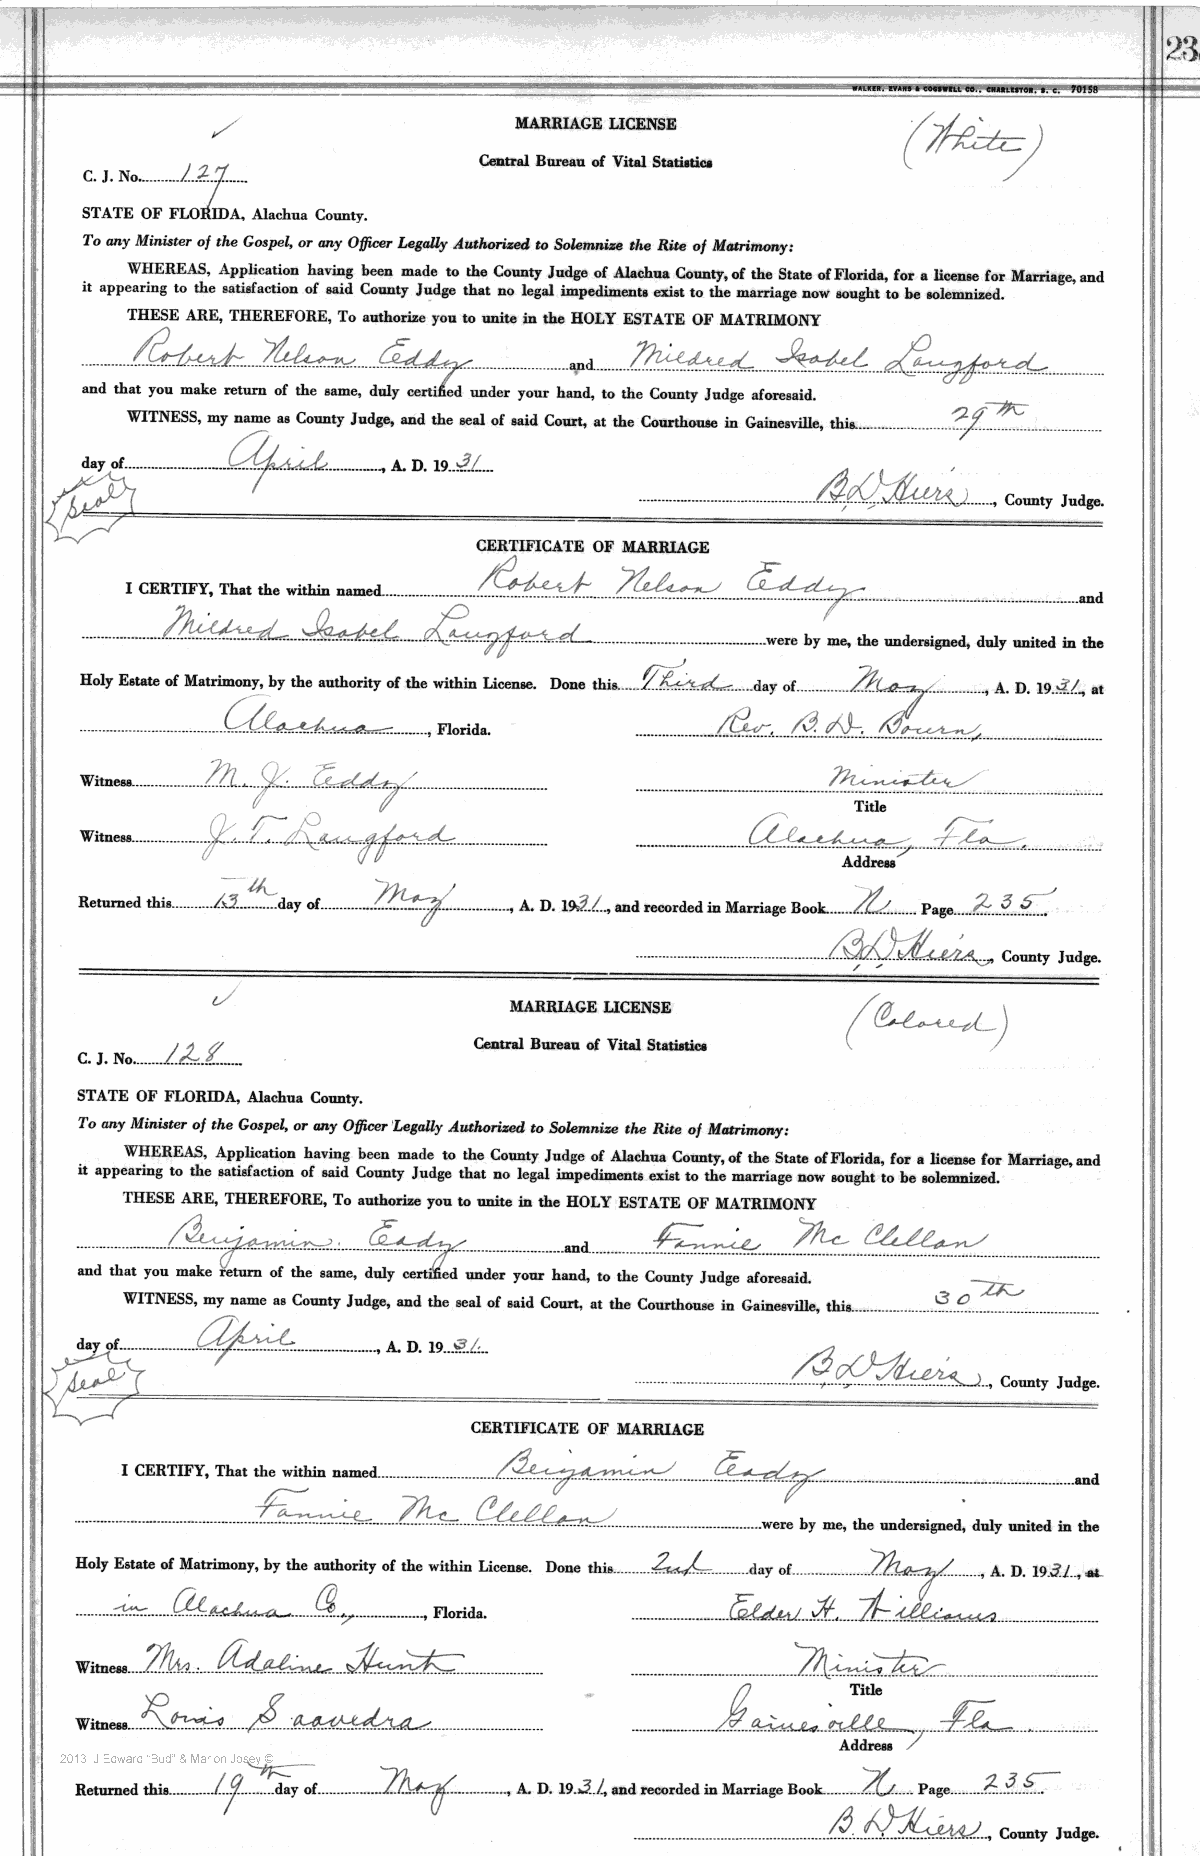 23
WALKER, EVANS & COGSWELL CO., CHARLESTON, S. C. 70158
MARRIAGE LICENSE
(White)
Central Bureau of Vital Statistics
C. J. No. 127
STATE OF FLORIDA, Alachua County.
To any Minister of the Gospel, or any Officer Legally Authorized to Solemnize the Rite of Matrimony:
WHEREAS, Application having been made to the County Judge of Alachua County, of the State of Florida, for a license for Marriage, and
it appearing to the satisfaction of said County Judge that no legal impediments exist to the marriage now sought to be solemnized.
THESE ARE, THEREFORE, To authorize you to unite in the HOLY ESTATE OF MATRIMONY
Robert Nelson Eddy and Mildred Isabel Langford
and that you make return of the same, duly certified under your hand, to the County Judge aforesaid.
WITNESS, my name as County Judge, and the seal of said Court, at the Courthouse in Gainesville, this 29th
day of April, A. D. 1931
Seal
B. D. Hiers, County Judge.
CERTIFICATE OF MARRIAGE
I CERTIFY, That the within named Robert Nelson Eddy and
Mildred Isabel Langford were by me, the undersigned, duly united in the
Holy Estate of Matrimony, by the authority of the within License. Done this Third day of May, A. D. 1931, at
Alachua, Florida. Rev. B. D. Bourn,
Witness M. J. Eddy Minister
Title
Witness J. T. Langford Alachua, Fla.
Address
Returned this 13th day of May, A. D. 1931, and recorded in Marriage Book N Page 235.
B. D. Hiers, County Judge.
MARRIAGE LICENSE
(Colored)
Central Bureau of Vital Statistics
C. J. No. 128
STATE OF FLORIDA, Alachua County.
To any Minister of the Gospel, or any Officer Legally Authorized to Solemnize the Rite of Matrimony:
WHEREAS, Application having been made to the County Judge of Alachua County, of the State of Florida, for a license for Marriage, and
it appearing to the satisfaction of said County Judge that no legal impediments exist to the marriage now sought to be solemnized.
THESE ARE, THEREFORE, To authorize you to unite in the HOLY ESTATE OF MATRIMONY
Benjamin Eady and Fannie McClellan
and that you make return of the same, duly certified under your hand, to the County Judge aforesaid.
WITNESS, my name as County Judge, and the seal of said Court, at the Courthouse in Gainesville, this 30th
day of April, A. D. 1931.
Seal
B. D. Hiers, County Judge.
CERTIFICATE OF MARRIAGE
I CERTIFY, That the within named Benjamin Eady and
Fannie McClellan were by me, the undersigned, duly united in the
Holy Estate of Matrimony, by the authority of the within License. Done this 2nd day of May, A. D. 1931, at
in Alachua Co., Florida. Elder H. Williams
Witness Mrs. Adaline Hunt Minister
Title
Witness Louis Saavedra Gainesville, Fla.
Address
2013 J Edward "Bud" & Marion Josey ©
Returned this 19th day of May, A. D. 1931, and recorded in Marriage Book N Page 235
B. D. Hiers, County Judge.